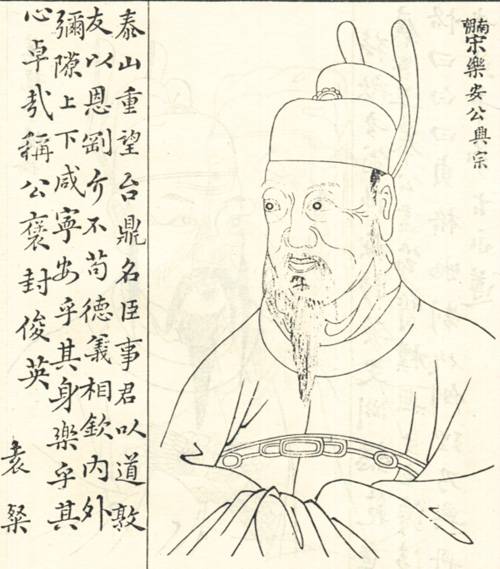 南朝宋樂安公興宗
泰山重望台鼎名臣事君以道敦
友以恩劉介不苟德義相欽內外
彌隙上下咸寧安乎其身樂乎其
心卓哉稱公褒封俊英
袁粲